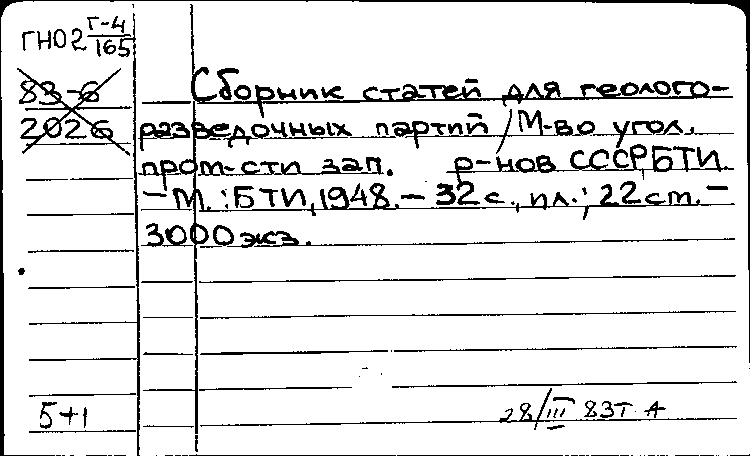 ГНО2 Г-4/165
83-6
2026
Сборник статей для геолого-
разведочных партий / М-во угол.
пром-сти зап. р-нов СССР, БТИ.
- М.: БТИ, 1948. - 32 с., ил.; 22 см. -
3000 экз.
5+1
28/III 83г. А